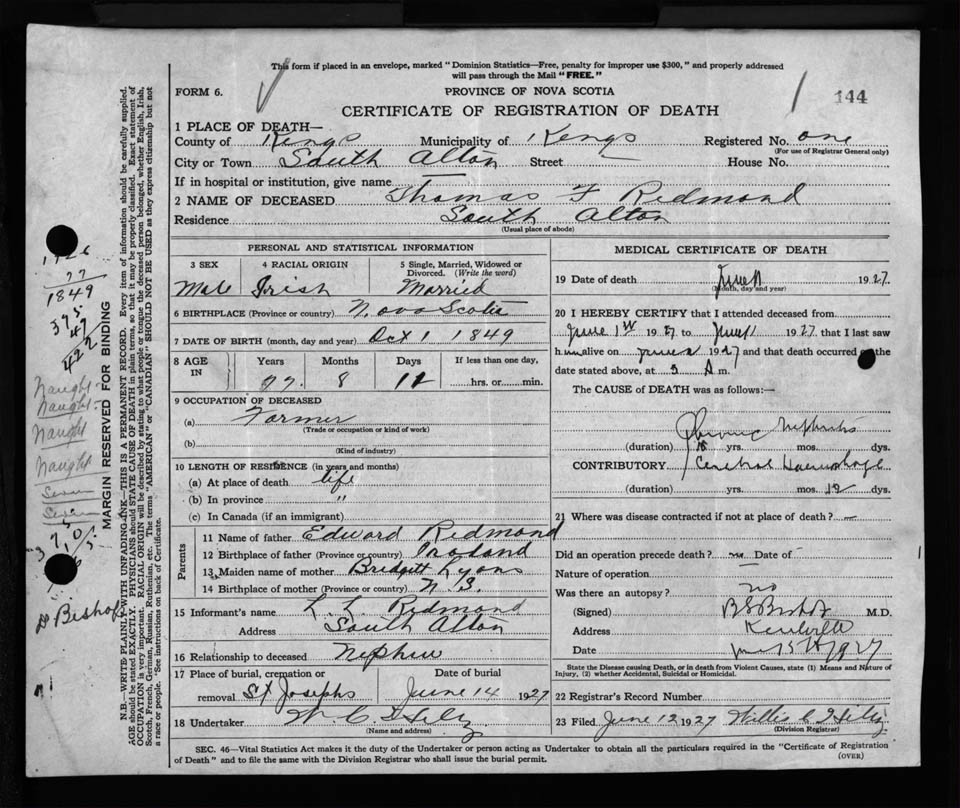 This form if placed in an envelope, marked "Dominion Statistics—Free, penalty for improper use $300," and properly addressed
will pass through the Mail "FREE."
FORM 6.
PROVINCE OF NOVA SCOTIA
144
CERTIFICATE OF REGISTRATION OF DEATH
1 PLACE OF DEATH—
County of Kings Municipality of Kings Registered No. one
(For use of Registrar General only)
City or Town South Alton Street — House No.
If in hospital or institution, give name —
2 NAME OF DECEASED Thomas F Redmond
Residence South Alton
(Usual place of abode)
PERSONAL AND STATISTICAL INFORMATION
3 SEX 4 RACIAL ORIGIN 5 Single, Married, Widowed or Divorced. (Write the word)
Male Irish Married
6 BIRTHPLACE (Province or country) Nova Scotia
7 DATE OF BIRTH (month, day and year) Oct 1 1849
8 AGE IN Years Months Days If less than one day,
77 8 hrs. or min.
9 OCCUPATION OF DECEASED
(a) Farmer
(Trade or occupation or kind of work)
(b)
(Kind of industry)
10 LENGTH OF RESIDENCE (in years and months)
(a) At place of death life
(b) In province "
(c) In Canada (if an immigrant)
Parents
11 Name of father Edward Redmond
12 Birthplace of father (Province or country)
13 Maiden name of mother Bridgitt Lyons
14 Birthplace of mother (Province or country) N.S.
15 Informant's name Redmond
Address South Alton
16 Relationship to deceased Nephew
17 Place of burial, cremation or removal St Josephs
Date of burial June 14 1927
18 Undertaker
(Name and address)
MEDICAL CERTIFICATE OF DEATH
19 Date of death June 11 1927.
(Month, day and year)
20 I HEREBY CERTIFY that I attended deceased from
June 1st 1927 to June 11 1927 that I last saw
him alive on June 1927 and that death occurred on the
date stated above, at 5 A m.
The CAUSE of DEATH was as follows:—
Chronic Nephritis
(duration) yrs. mos. dys.
CONTRIBUTORY Cerebral Haemorrhage
(duration) yrs. mos. 12 dys.
21 Where was disease contracted if not at place of death? —
Did an operation precede death? no Date of —
Nature of operation —
Was there an autopsy? no
(Signed) B S Bishop M.D.
Address Kentville
Date 1927
State the Disease causing Death, or in death from Violent Causes, state (1) Means and Nature of
Injury, (2) whether Accidental, Suicidal or Homicidal.
22 Registrar's Record Number
23 Filed June 12 1927
(Division Registrar)
SEC. 46—Vital Statistics Act makes it the duty of the Undertaker or person acting as Undertaker to obtain all the particulars required in the "Certificate of Registration
of Death" and to file the same with the Division Registrar who shall issue the burial permit.
(OVER)
MARGIN RESERVED FOR BINDING
N.B.—WRITE PLAINLY WITH UNFADING INK—THIS IS A PERMANENT RECORD. Every item of information should be carefully supplied.
AGE should be stated EXACTLY. PHYSICIANS should STATE CAUSE OF DEATH in plain terms, so that it may be properly classified. Exact statement of
OCCUPATION is very important. RACIAL ORIGIN will be described by stating to what people or tongue the deceased person belonged, whether English, Irish,
Scotch, French, German, Russian, Ruthenian, etc. The terms "AMERICAN" or "CANADIAN" SHOULD NOT BE USED as they express citizenship but not
a race or people. "See instructions on back of Certificate.
77
1849
Naught
Naught
Naught
Naught
Seven
Seven
Dr Bishop